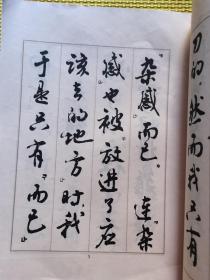 刀的。然而我只有
“杂感”而已。连“杂
感”也被“放进了应
该去的地方”时,我
于是只有“而已”